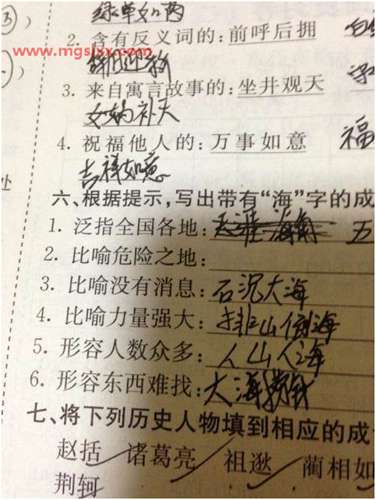 2. 含有反义词的: 前呼后拥
www.mgslsx.com
3. 来自寓言故事的: 坐井观天
女娲补天
4. 祝福他人的: 万事如意 福
吉祥如意
处
六、根据提示,写出带有“海”字的成
1. 泛指全国各地: 天涯海角 五
2. 比喻危险之地:
3. 比喻没有消息: 石沉大海
4. 比喻力量强大: 排山倒海
5. 形容人数众多: 人山人海
6. 形容东西难找: 大海捞针
七、将下列历史人物填到相应的成
赵括 诸葛亮 祖逖 蔺相如
荆轲